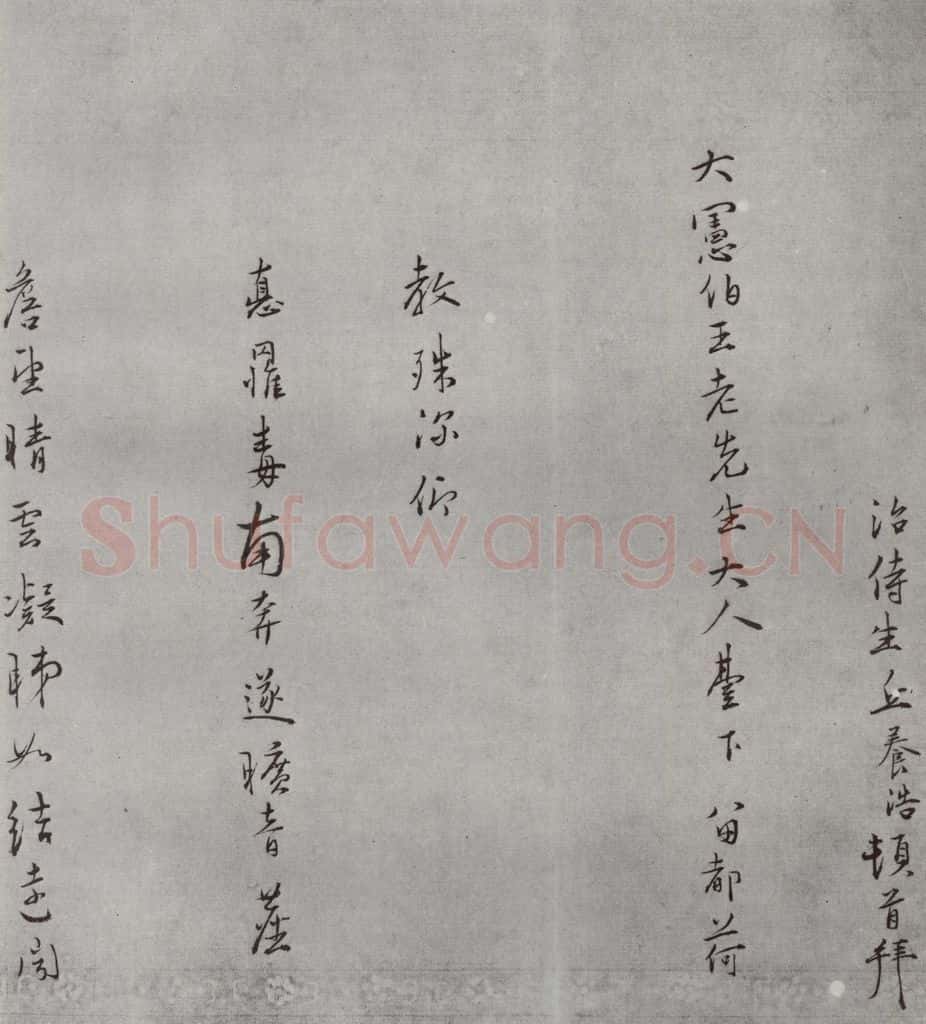 治侍生丘養浩頓首拜
大憲伯王老先生大人臺下 留都荷
教殊深仰
惠罹毒南奔遂曠音
詹望晴雲凝睇如結
Shufawang.CN